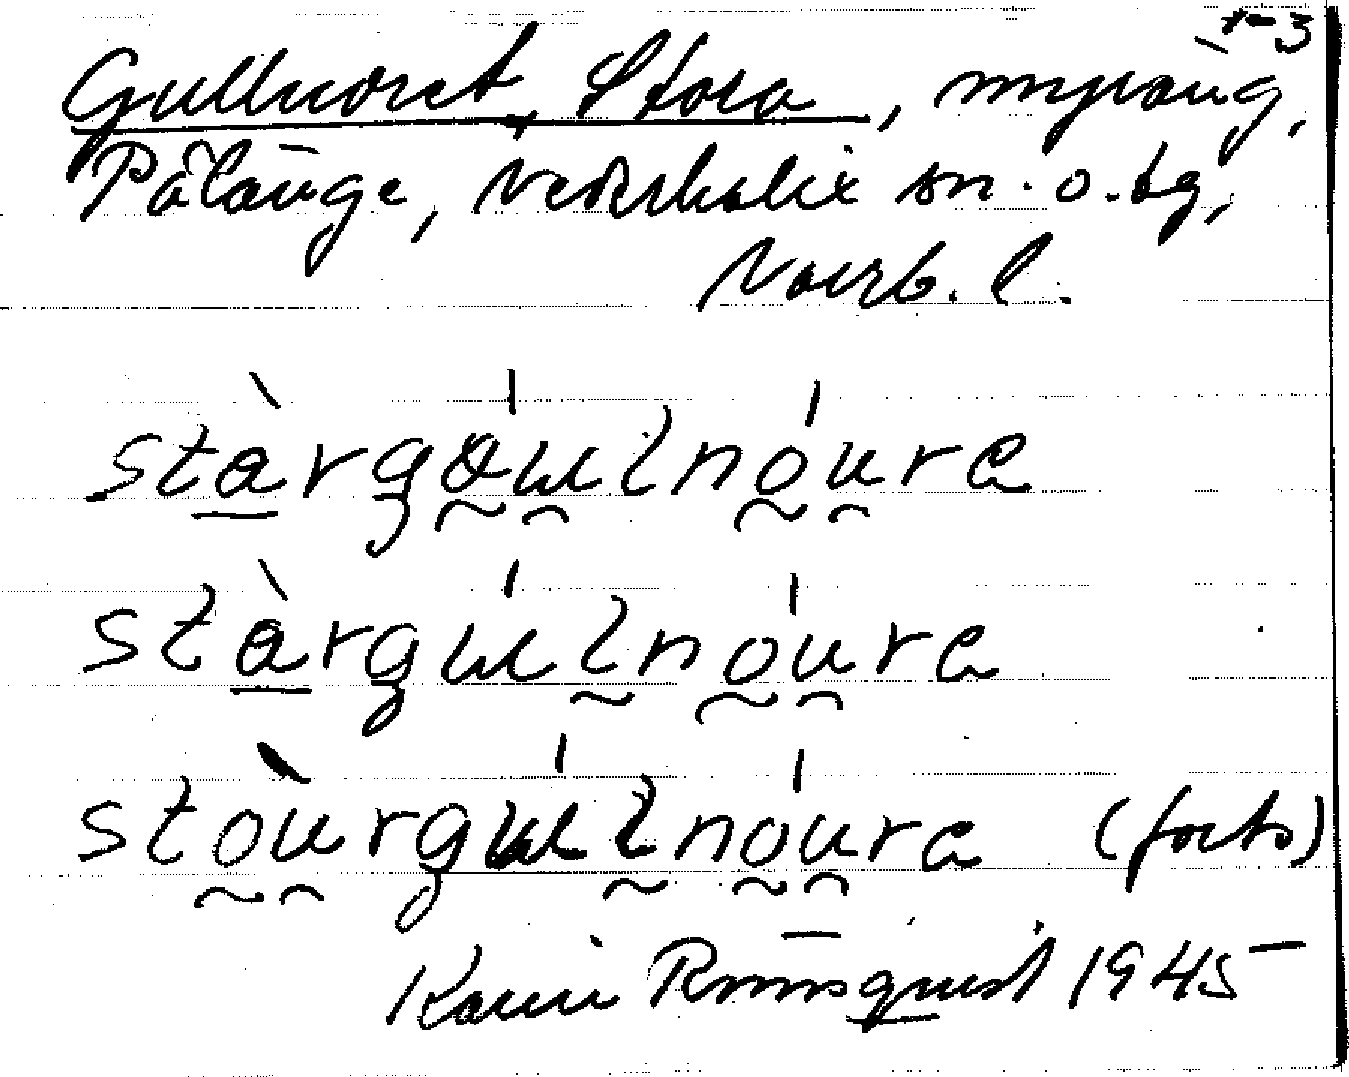 t-3
Gullnoret, Stora, myräng,
Pålänge, Nederkalix sn. o. tg,
Norrb. l.
stàrgówlnóure
stàrgẃlnóure
stòurgẃlnóure (forts)
Karin Rönnquist 1945